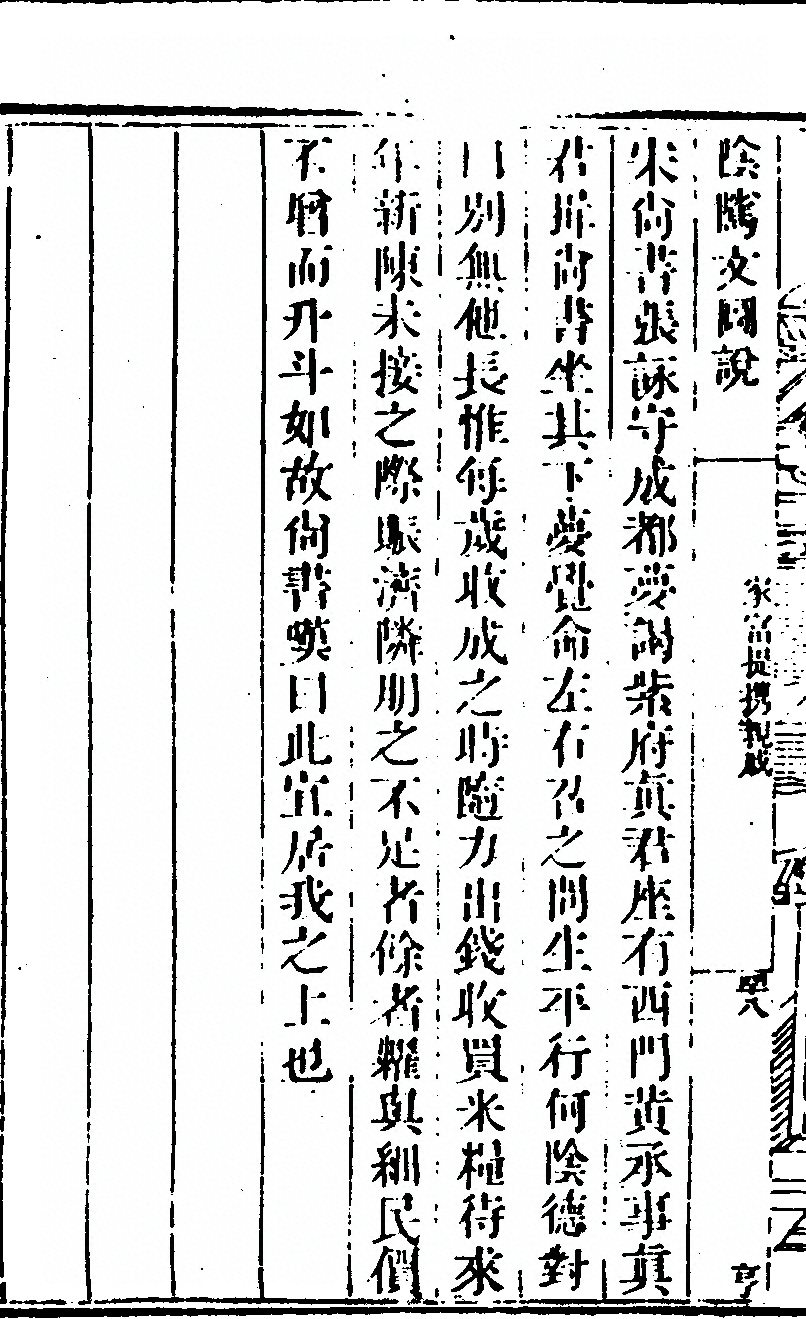 陰騭文圖說
家富提攜親戚
四八
亨
宋尚書張詠守成都夢謁紫府真君座有西門黃承事真
君揖尚書坐其下夢覺命左右召之問生平行何陰德對
曰別無他長惟每歲收成之時隨力出錢收買米糧待來
年新陳未接之際賑濟隣朋之不足者餘者糶與細民價
不增而升斗如故尚書嘆曰此宜居我之上也